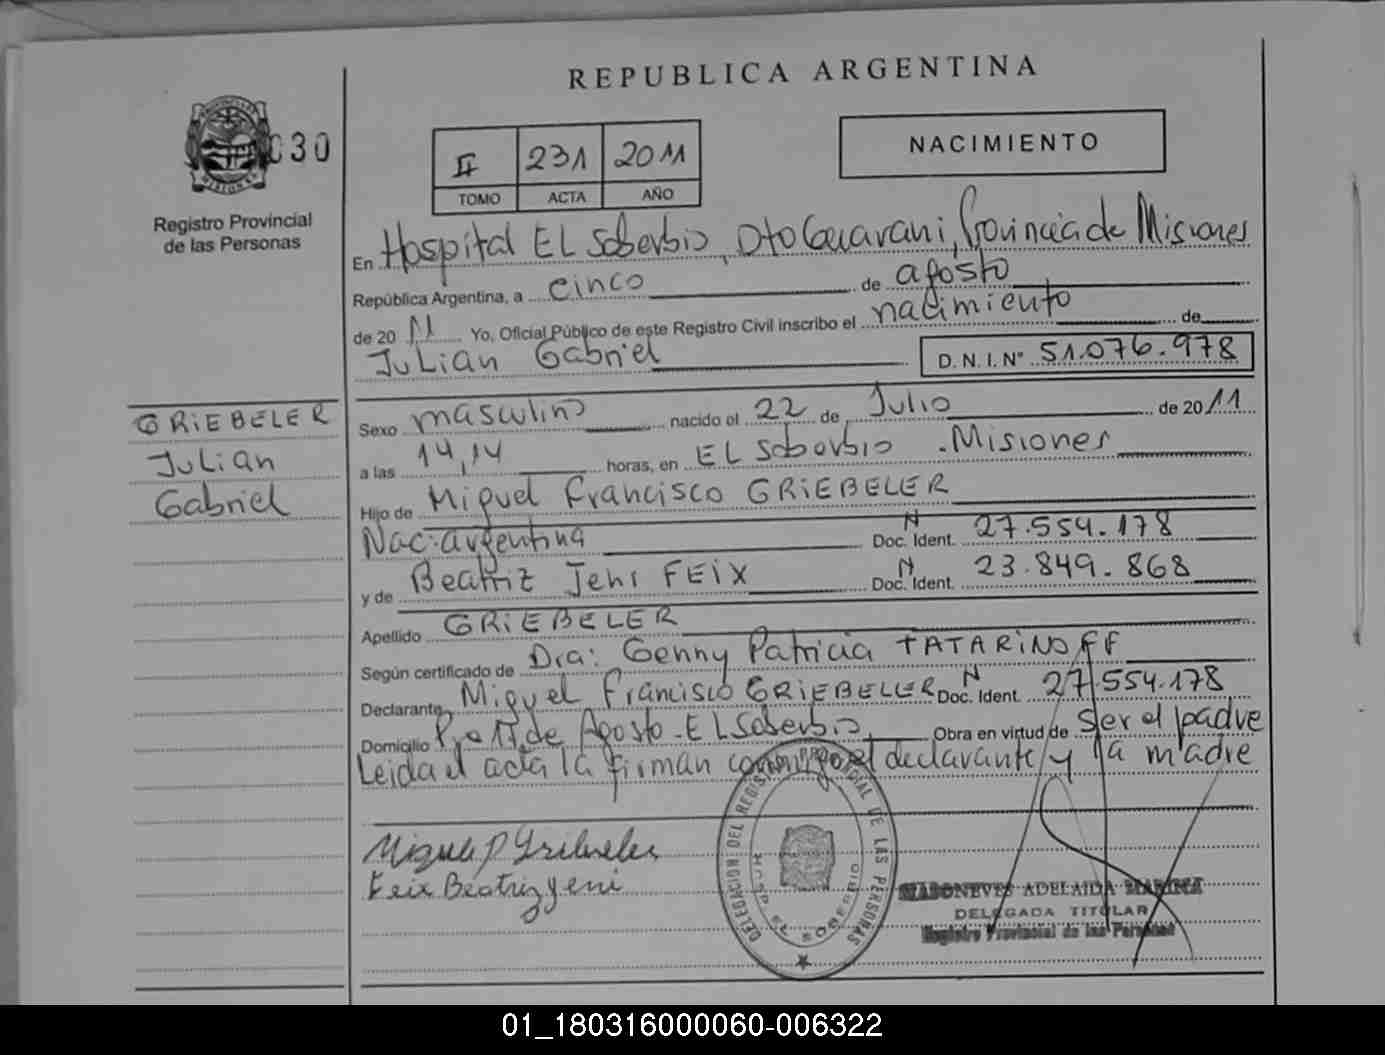 REPUBLICA ARGENTINA
030
Registro Provincial
de las Personas
II 231 2011
TOMO ACTA AÑO
NACIMIENTO
En Hospital EL Soberbio, Dto Guarani, Provincia de Misiones
República Argentina, a cinco de agosto
de 2011 Yo, Oficial Público de este Registro Civil inscribo el nacimiento de
Julian Gabriel D.N.I.Nº 51.076.978
GRIEBELER
Julian
Gabriel
Sexo masculino nacido el 22 de Julio de 2011
a las 14,14 horas, en EL Soberbio .Misiones
Hijo de Miguel Francisco GRIEBELER
Nac: argentina Doc. Ident. N 27.554.178
y de Beatriz Jeni FEIX Doc. Ident. N 23.849.868
Apellido GRIEBELER
Según certificado de Dra: Genny Patricia TATARINOFF
Declarante Miguel Francisco GRIEBELER Doc. Ident. N 27.554.178
Domicilio de Agosto - EL Soberbio, Obra en virtud de ser el padre
Leida el acta la firman conmigo el declarante y la madre
Feix Beatriz yeni
DELEGACION DEL REGISTRO PROVINCIAL DE LAS PERSONAS
HOSP EL SOBERBIO
ADELAIDA MARINA
DELEGADA TITULAR
Registro Provincial de las Personas
01_180316000060-006322